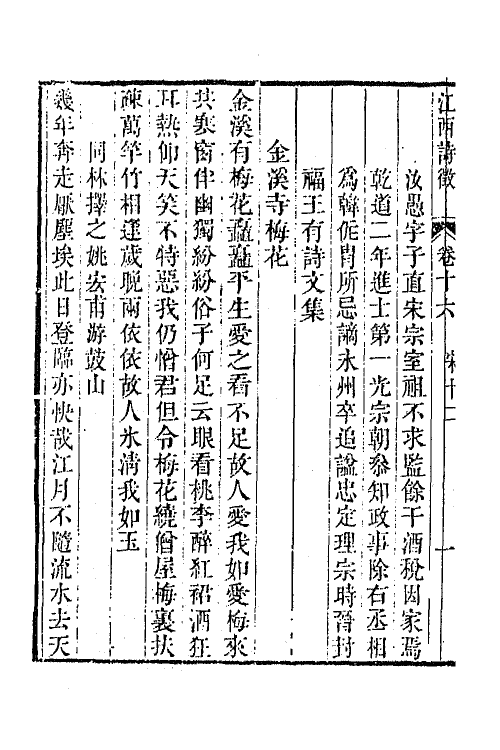 江西詩徵　卷十六　宋十二　一
汝愚字子直宋宗室祖不求監餘干酒稅因家焉
乾道二年進士第一光宗朝參知政事除右丞相
爲韓侂冑所忌謫永州卒追謚忠定理宗時晉封
福王有詩文集
金溪寺梅花
金溪有梅花矗矗平生愛之看不足故人愛我如愛梅來
共寒窗伴幽獨紛紛俗子何足云眼看桃李醉紅裙酒狂
耳熱仰天笑不特惡我仍憎君但令梅花繞僧屋梅裏扶
疎萬竿竹相逢歲晚兩依依故人氷淸我如玉
同林擇之姚宏甫游鼓山
幾年奔走厭塵埃此日登臨亦快哉江月不隨流水去天